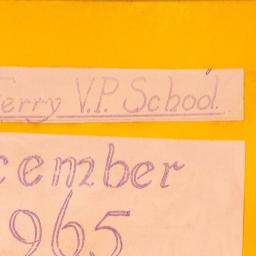 erry V.P. School.
cember
965